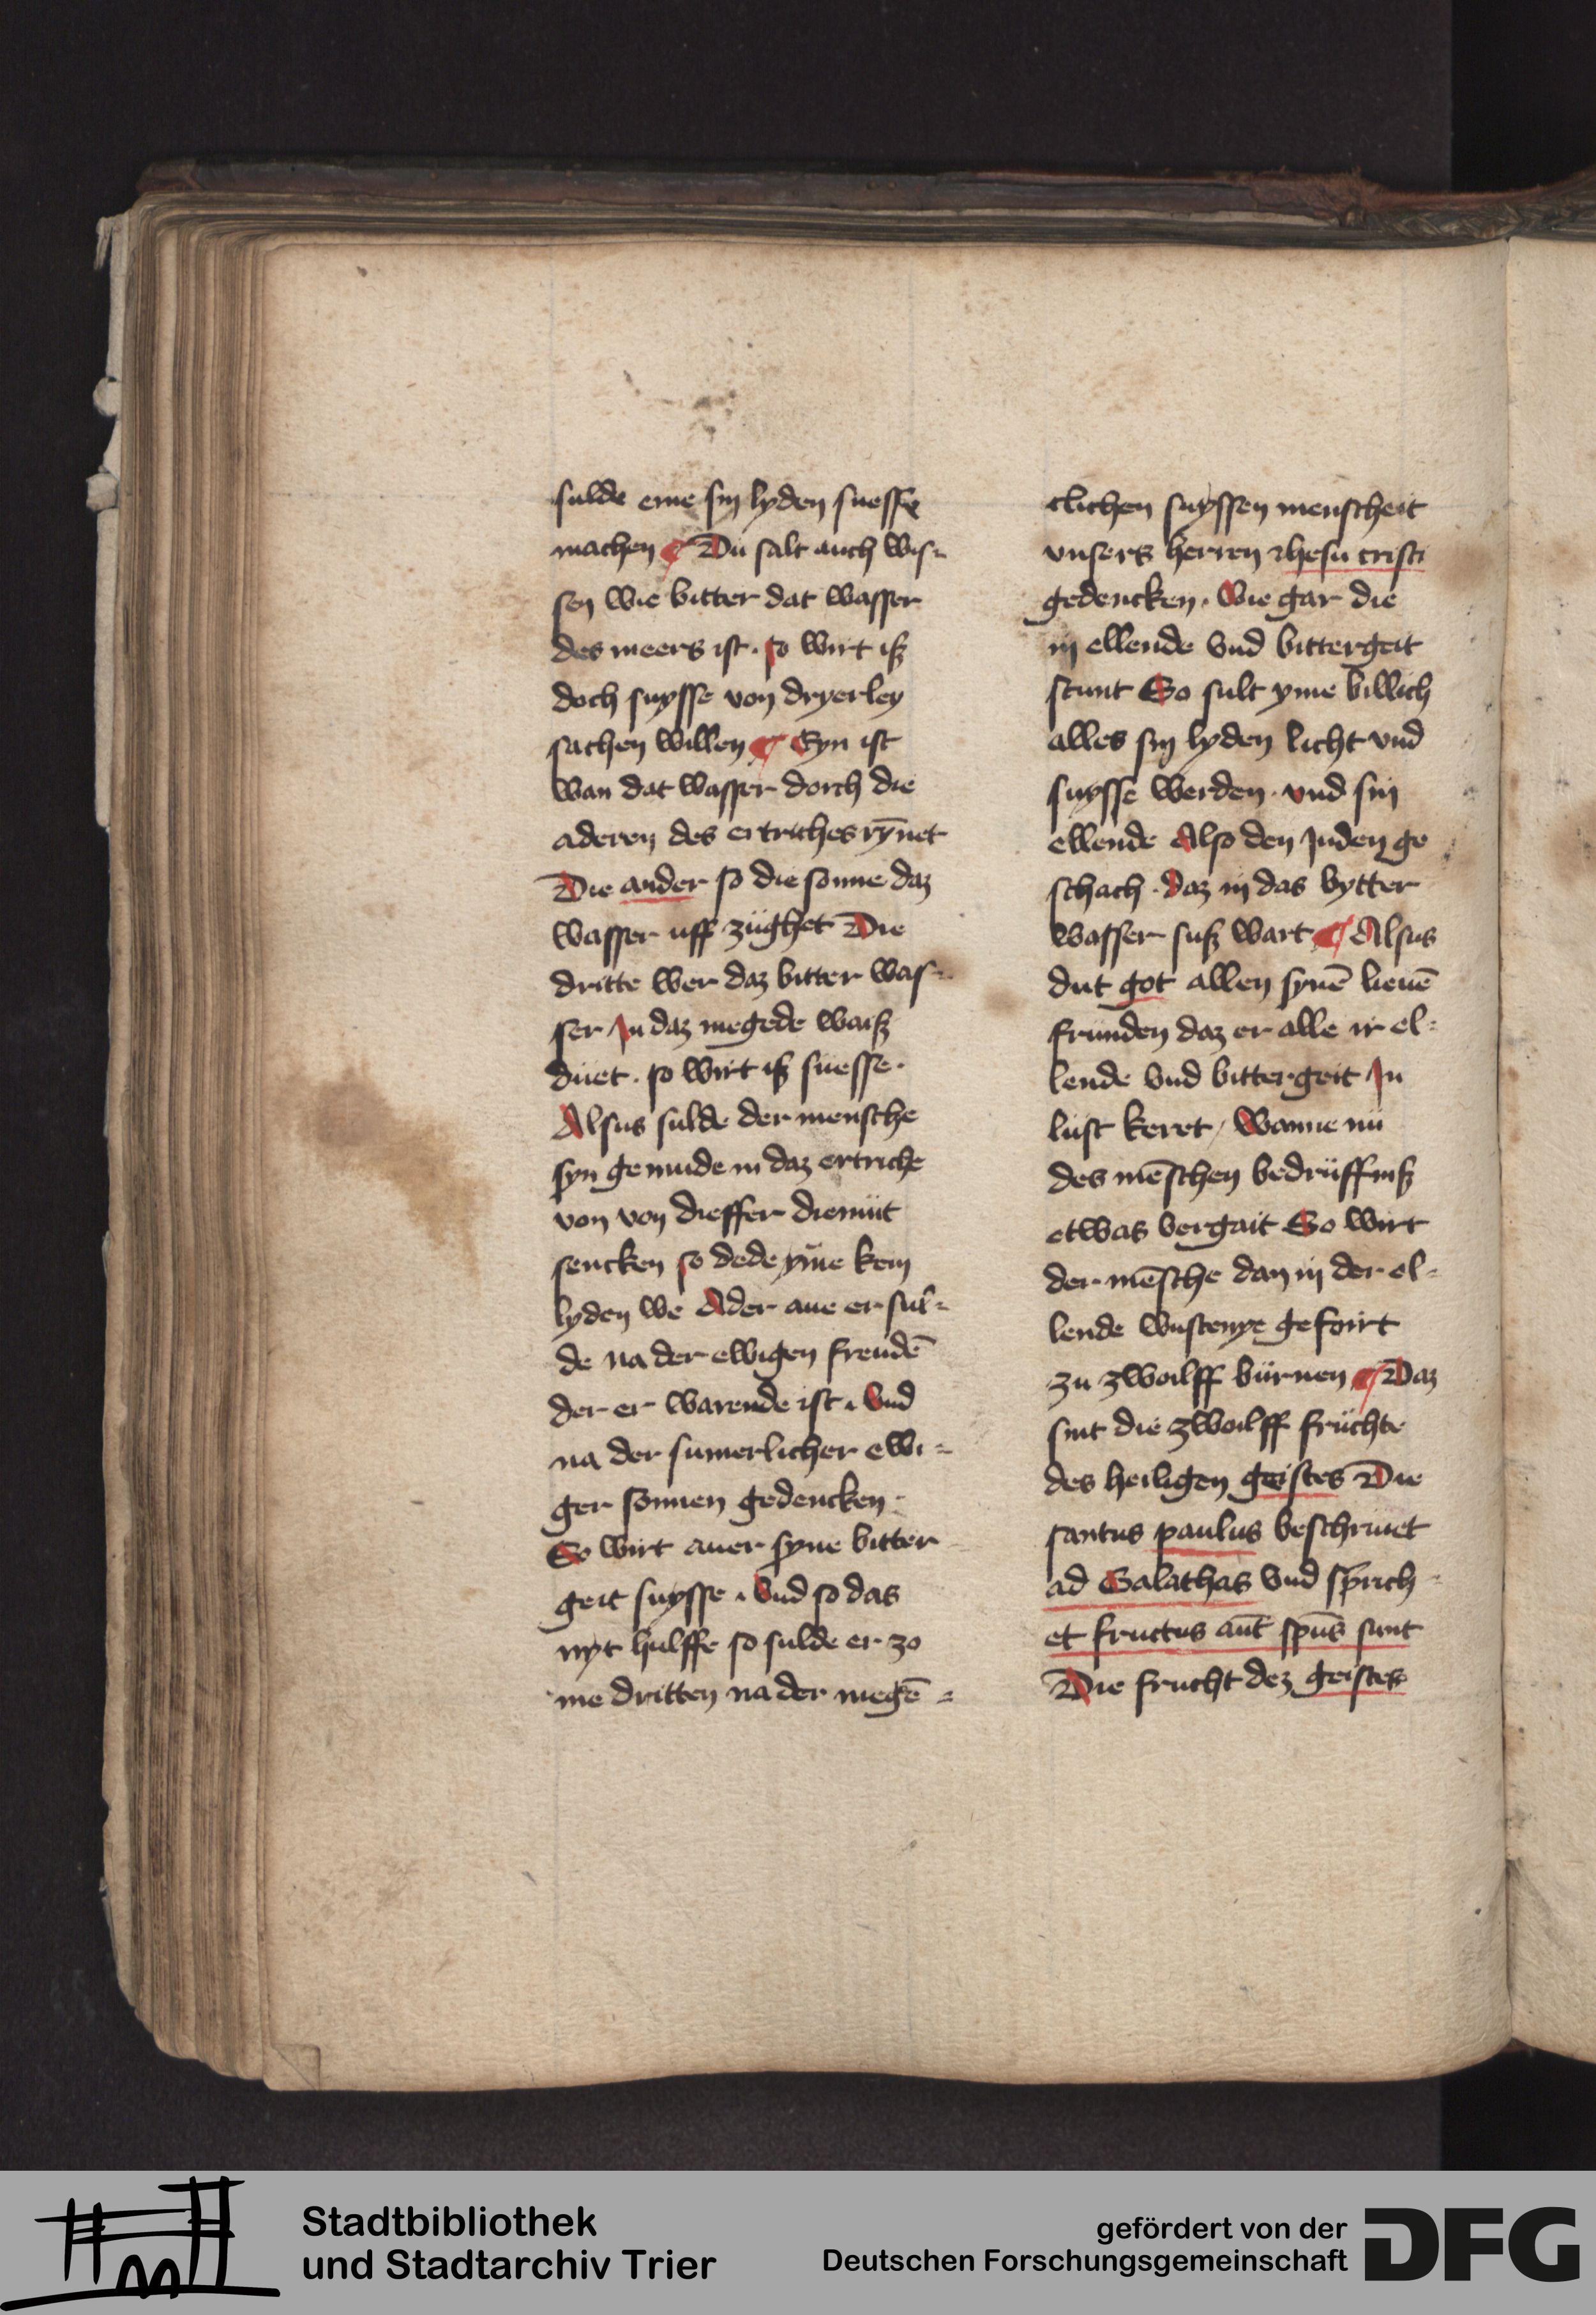 sulde eme sin lyden suesse
machen ¶ Du salt auch wis-
sen wie bitter dat wasser
des meers ist. so wirt iß
doch suysse von dryerley
sachen willen ¶ Eyn ist
wan dat wasser dorch die
aderen des ertriches rÿnet
Die ander so die sonne daz
wasser uff züghet Die
dritte wer daz bitter was-
ser Jn daz megede waiß
düet. so wirt iß suesse.
Alsus sulde der mensche
syn gemude in daz ertriche
von von dieffer diemüt
sencken so dede yme kein
lyden we Ader aue er sul-
de na der ewigen freudē
der er warende ist. Vnd
na der sumerlicher ewi-
ger sonnen gedencken.
So wirt auer syne bitter
geit suysse. Vnd so das
nyt hulffe so sulde er zo
me dritten na der megē-
tlichen suyssen menscheit
vnsers herren ihesu cristi
gedencken. Wie gar die
in ellende vnd bittergeit
stunt So sult yme billich
alles sin lyden licht vnd
suysse werden. vnd sin
ellende Also den Juden ge
schach. daz in das bytter
wasser suß wart ¶ Alsus
dut got allen synē lieuē
frunden daz er alle ir el-
lende vnd bittergeit Jn
lust keret / Wanne nu
des mēschen bedrüffniß
etwas vergait So wirt
der mēsche dan in der el-
lende wustenye gefoirt
zu zwoilff bürnen ¶ Daz
sint die zwoilff früchte
des heiligen geistes Die
santus paulus beschriuet
ad Galathas vnd sprich
et fructus aūt spūs sunt
Die frucht dez geistes
Stadtbibliothek
und Stadtarchiv Trier
gefördert von der
Deutschen Forschungsgemeinschaft
DFG